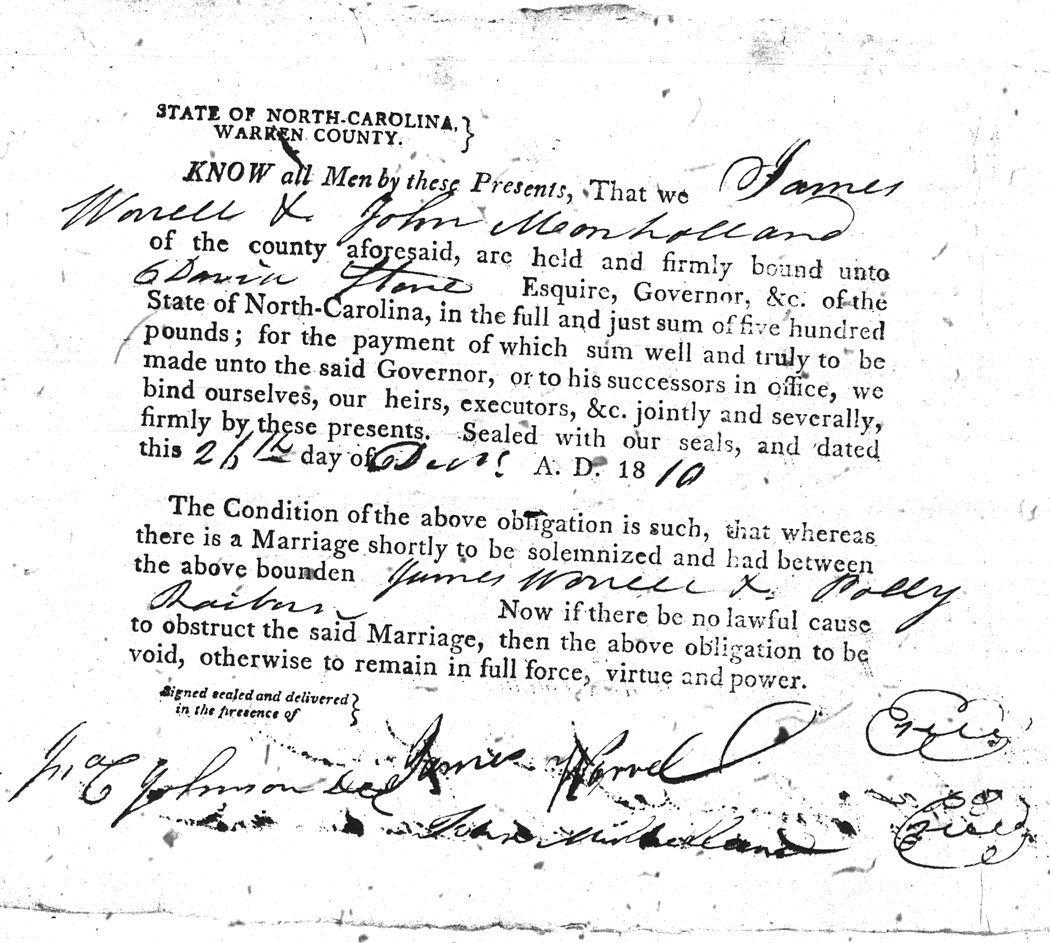 STATE OF NORTH-CAROLINA, }
WARREN COUNTY.
KNOW all Men by these Presents, That we James
Worrell & John Monholland
of the county aforesaid, are held and firmly bound unto
David Stone Esquire, Governor, &c. of the
State of North-Carolina, in the full and just sum of five hundred
pounds; for the payment of which sum well and truly to be
made unto the said Governor, or to his successors in office, we
bind ourselves, our heirs, executors, &c. jointly and severally,
firmly by these presents. Sealed with our seals, and dated
this 26th day of Decr. A. D. 1810
The Condition of the above obligation is such, that whereas
there is a Marriage shortly to be solemnized and had between
the above bounden James Worrell & Polly
Now if there be no lawful cause
to obstruct the said Marriage, then the above obligation to be
void, otherwise to remain in full force, virtue and power.
Signed sealed and delivered }
in the presence of
James Worrel
Jno C Johnson
John